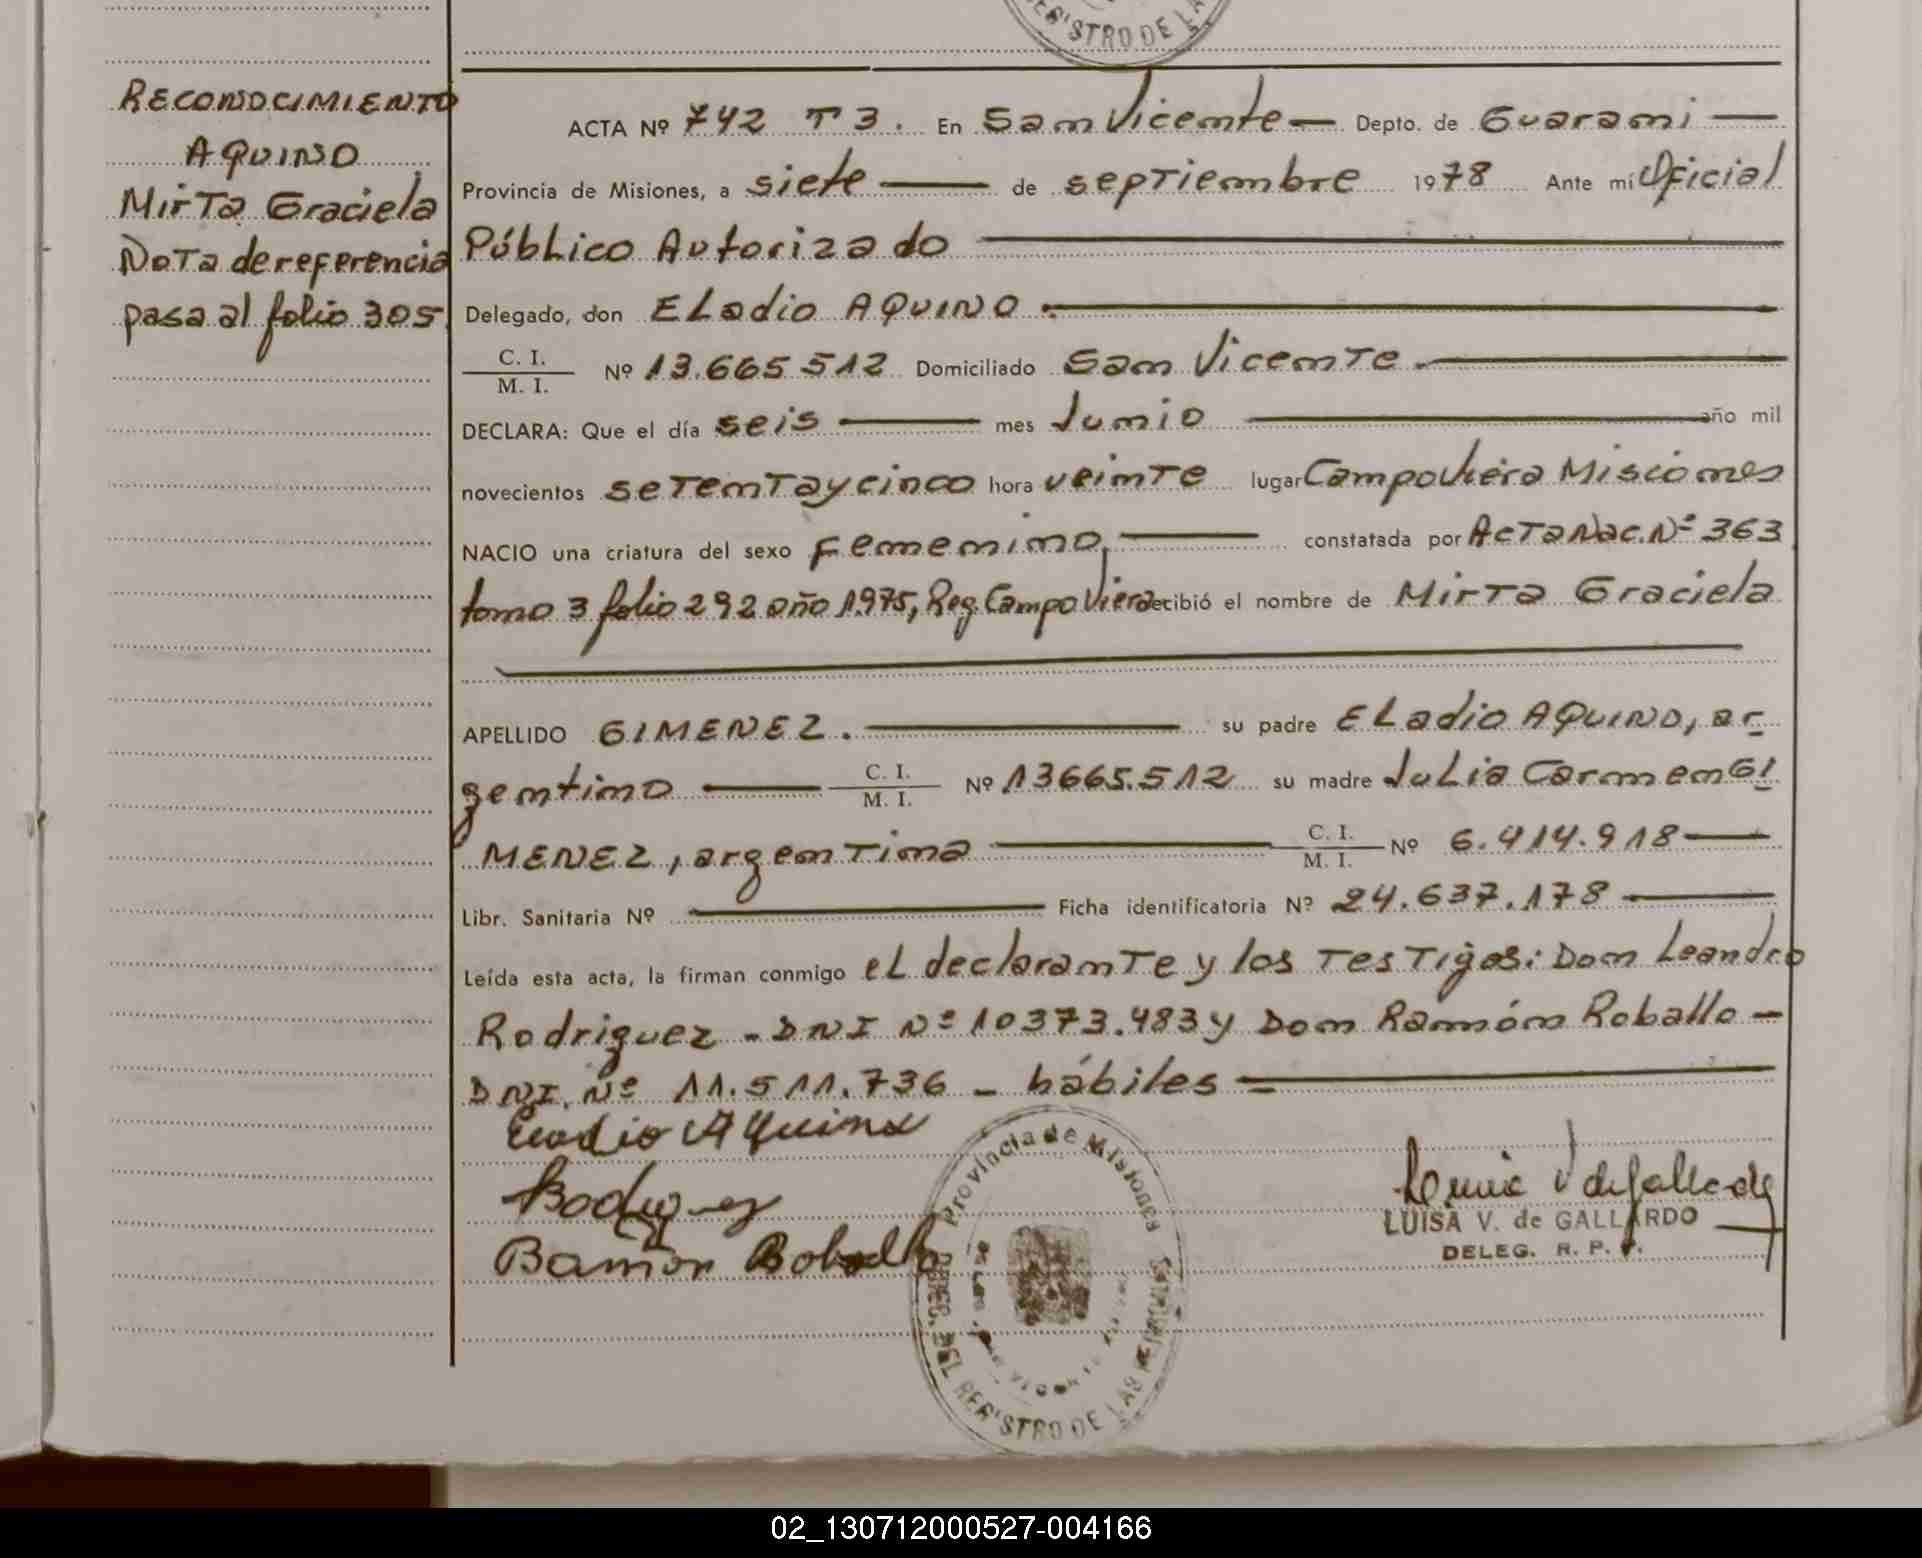 REG'STRO DE LA
RECONOCIMIENTO
AQUINO
Mirta Graciela
Nota de referencia
pasa al folio 305
ACTA Nº 742 T 3. En San Vicente — Depto. de Guarani —
Provincia de Misiones, a siete — de septiembre 1978 Ante mí Oficial
Público Autorizado —
Delegado, don ELadio AQUINO. —
C. I. / M. I. Nº 13.665.512 Domiciliado San Vicente. —
DECLARA: Que el día seis — mes Junio — año mil
novecientos setentaycinco hora veinte lugar Campo Viera Misiones
NACIO una criatura del sexo femenino, — constatada por Acta Nac. Nº 363
tomo 3 folio 292 año 1975, Reg. Campo Viera recibió el nombre de Mirta Graciela
—
APELLIDO GIMENEZ. — su padre ELadio AQUINO, ar-
gentino — C. I. / M. I. Nº 13665.512 su madre JuLia Carmen GI
MENEZ, argentina — C. I. / M. I. Nº 6.414.918 —
Libr. Sanitaria Nº — Ficha identificatoria Nº 24.637.178 —
Leída esta acta, la firman conmigo eL declarante y los Testigos: Don Leandro
Rodriguez - DNI Nº 10373.483 y Don Ramón Roballo —
DNI. Nº 11.511.736 - hábiles = —
Eladio Aquino
Rodriguez
Ramon Roballo
Provincia de Misiones
DEL REG'STRO DE LAS PERSONAS
Luisa V de Gallardo
LUISA V. de GALLARDO
DELEG. R. P. P.
02_130712000527-004166